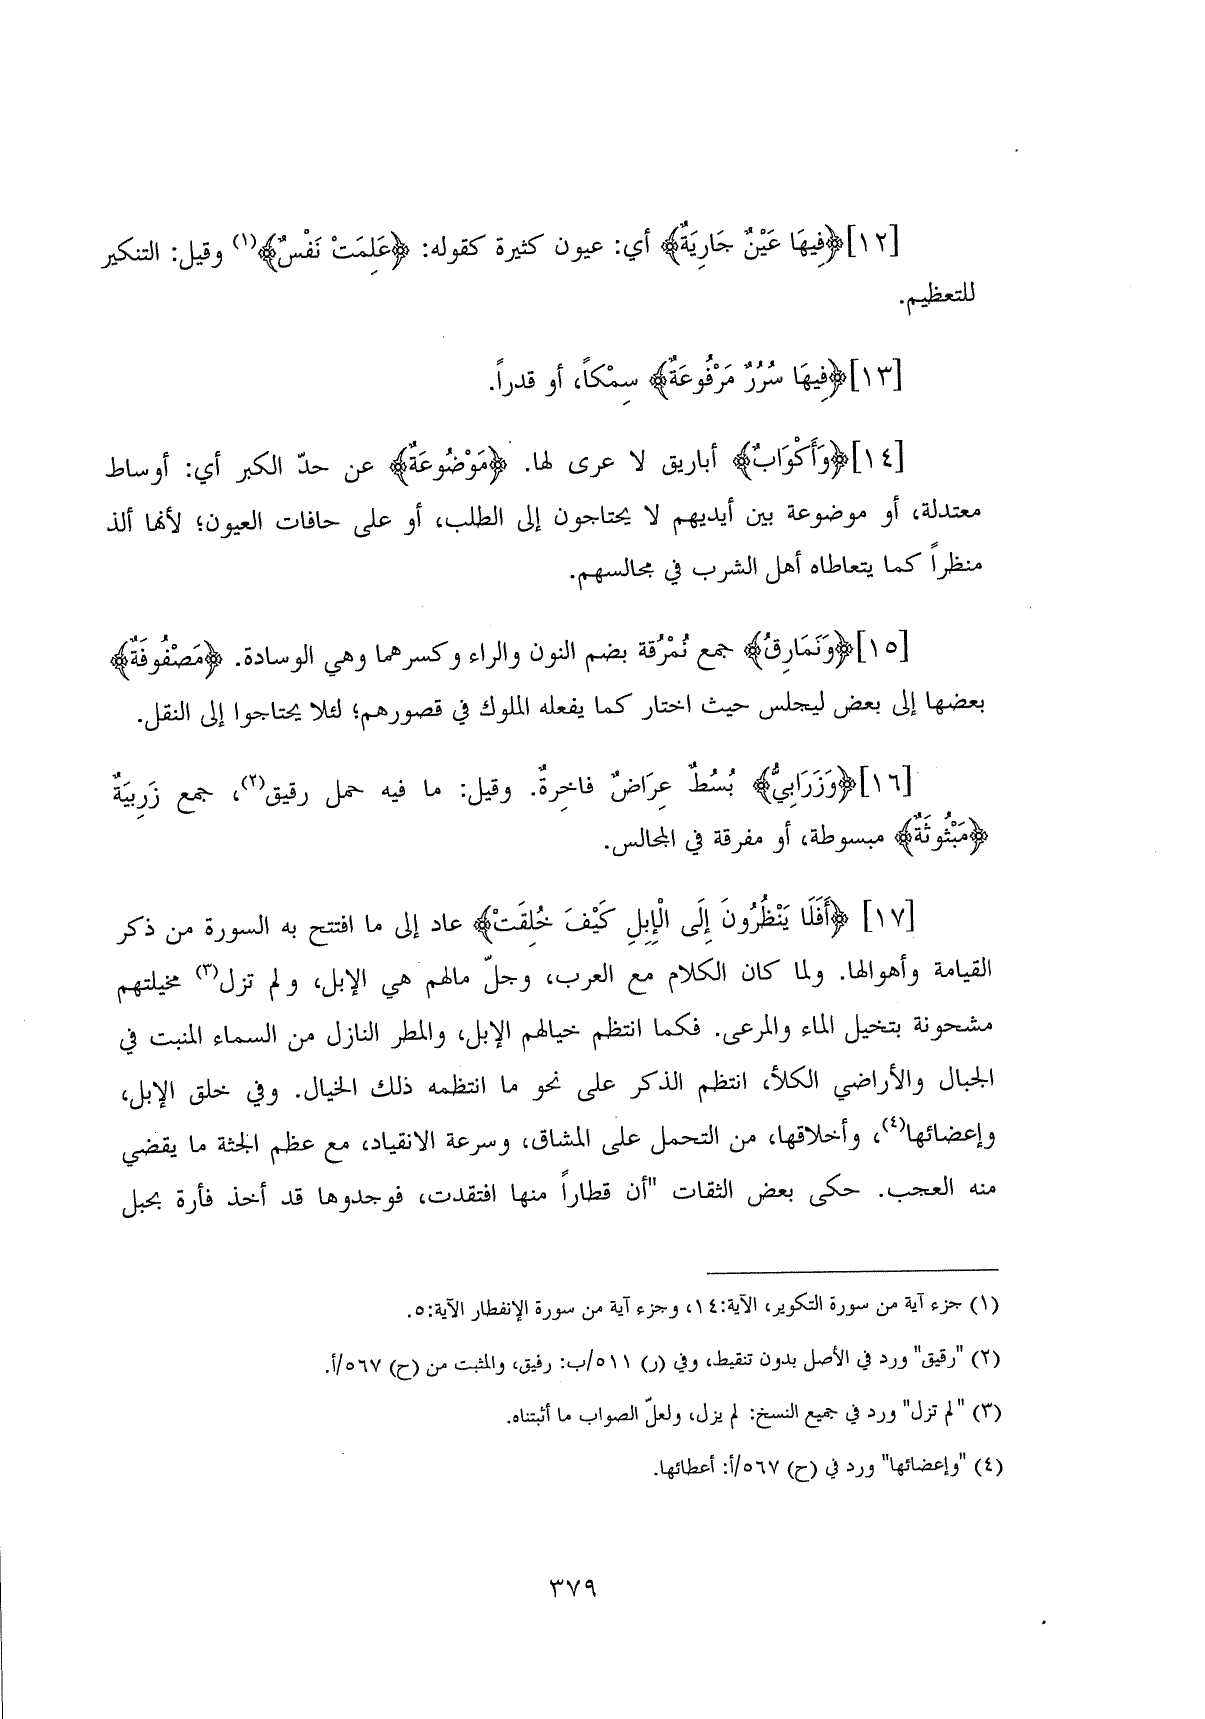 [١٢]﴿فِيهَا عَيْنٌ جَارِيَةٌ﴾ أي: عيون كثيرة كقوله: ﴿عَلِمَتْ نَفْسٌ﴾(١) وقيل: التنكير
للتعظيم.
[١٣]﴿فِيهَا سُرُرٌ مَرْفُوعَةٌ﴾ سِمْكاً، أو قدراً.
[١٤]﴿وَأَكْوَابٌ﴾ أباريق لا عرى لها. ﴿مَوْضُوعَةٌ﴾ عن حدّ الكبر أي: أوساط
معتدلة، أو موضوعة بين أيديهم لا يحتاجون إلى الطلب، أو على حافات العيون؛ لأنها ألذ
منظراً كما يتعاطاه أهل الشرب في مجالسهم.
[١٥]﴿وَنَمَارِقُ﴾ جمع نُمْرُقة بضم النون والراء وكسرهما وهي الوسادة. ﴿مَصْفُوفَةٌ﴾
بعضها إلى بعض ليجلس حيث اختار كما يفعله الملوك في قصورهم؛ لئلا يحتاجوا إلى النقل.
[١٦]﴿وَزَرَابِيُّ﴾ بُسُطٌ عِرَاضٌ فاخِرةٌ. وقيل: ما فيه خمل رقيق(٢)، جمع زَرِبيَةٌ
﴿مَبْثُوثَةٌ﴾ مبسوطة، أو مفرقة في المجالس.
[١٧] ﴿أَفَلَا يَنْظُرُونَ إِلَى الْإِبِلِ كَيْفَ خُلِقَتْ﴾ عاد إلى ما افتتح به السورة من ذكر
القيامة وأهوالها. ولما كان الكلام مع العرب، وجلّ مالهم هي الإبل، ولم تزل(٣) مخيلتهم
مشحونة بتخيل الماء والمرعى. فكما انتظم خيالهم الإبل، والمطر النازل من السماء المنبت في
الجبال والأراضي الكلأ، انتظم الذكر على نحو ما انتظمه ذلك الخيال. وفي خلق الإبل،
وإعضائها(٤)، وأخلاقها، من التحمل على المشاق، وسرعة الانقياد، مع عظم الجثة ما يقضي
منه العجب. حكى بعض الثقات "أن قطاراً منها افتقدت، فوجدوها قد أخذ فأرة بحبل
(١) جزء آية من سورة التكوير، الآية:١٤، وجزء آية من سورة الإنفطار الآية:٥.
(٢) "رقيق" ورد في الأصل بدون تنقيط، وفي (ر) ٥١١/ب: رفيق، والمثبت من (ح) ٥٦٧/أ.
(٣) "لم تزل" ورد في جميع النسخ: لم يزل، ولعلّ الصواب ما أثبتناه.
(٤) "وإعضائها" ورد في (ح) ٥٦٧/أ: أعطائها.
٣٧٩